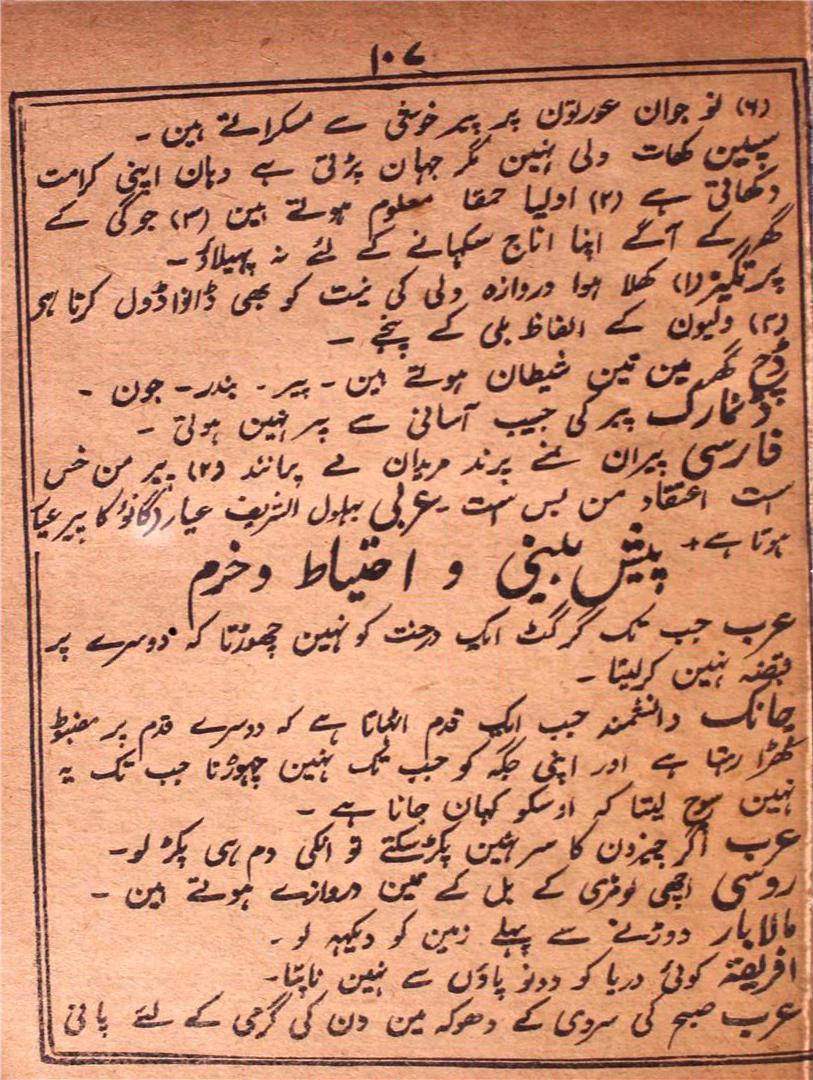 ۱۰۷
(۶) نو جوان عورتون پر پیر خوشی سے مسکراتے ہین ۔
سپین کھات ولی نہین مگر جہان پڑتی ہے وہان اپنی کرامت
دکھاتی ہے (۲) اولیا حمقا معلوم ہوتے ہین (۳) جوگی کے
گھر کے آگے اپنا اناج سکہانے کے لئے نہ پہیلاؤ ۔
پرتگیز (۱) کھلا ہوا دروازہ ولی کی نیت کو بھی ڈانوا ڈول کرتا ہی
(۲) ولیون کے الفاظ بلی کے پنجے ۔
ڈچ گھر مین تین شیطان ہوتے ہین ۔ پیر ۔ بندر ۔ جون ۔
ڈنمارک پیر کی جیب آسانی سے پر نہین ہوتی ۔
فارسی پیران نمے پرند مریدان مے پرانند (۲) پیر من خس
است اعتقاد من بس است ۔ عربی بہلول الشریف عیار (گانؤ کا پیر عیار
ہوتا ہے +
پیش بینی و احتیاط و خرم
عرب جب تک گرگٹ ایک درخت کو نہین چھوڑتا کہ دوسرے پر
قبضہ نہین کرلیتا ۔
چانک دانشمند جب ایک قدم اٹھاتا ہے کہ دوسرے قدم پر مضبوط
کھڑا رہتا ہے اور اپنی جگہ کو جب تک نہین چہوڑتا جب تک یہ
نہین سوچ لیتا کہ اوسکو کہان جانا ہے ۔
عرب اگر چیزون کا سر نہین پکڑ سکتے تو انکی دم ہی پکڑ لو ۔
روسی اچھی لومڑی کے بل کے تین دروازے ہوتے ہین ۔
مالابار دوڑنے سے پہلے زمین کو دیکہہ لو ۔
افریقہ کوئی دریا کو دونو پاؤں سے نہین ناپتا ۔
عرب صبح کی سردی کے دھوکہ مین دن کی گرمی کے لئے پانی